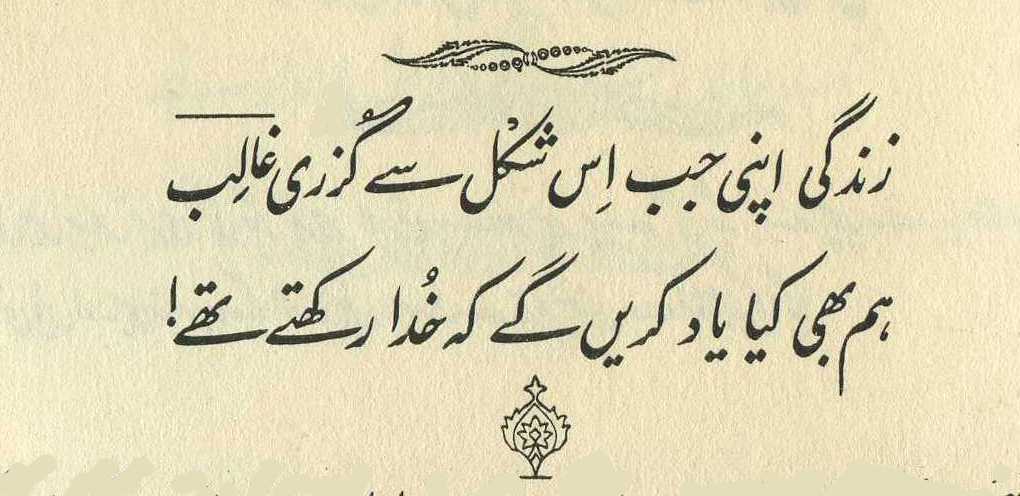 زندگی اپنی جب اِس شکْل سے گُزری غالِب
ہم بھی کیا یاد کریں گے کہ خُدا رکھتے تھے!